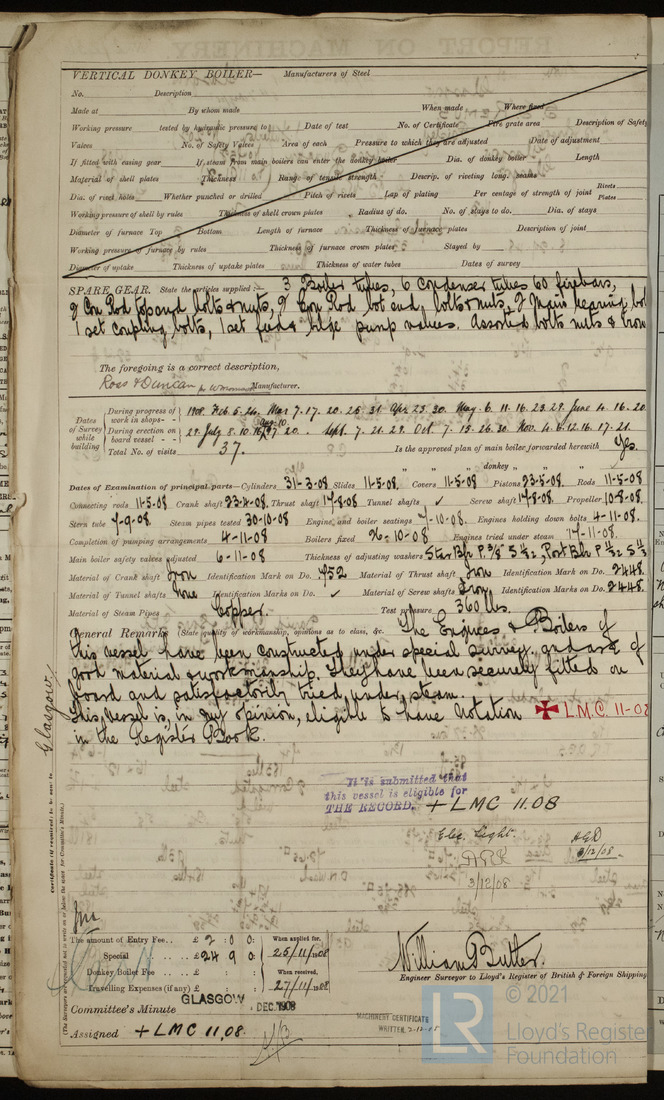 VERTICAL DONKEY BOILER— Manufacturers of Steel
No. Description
Made at By whom made When made Where fixed
Working pressure tested by hydraulic pressure to Date of test No. of Certificate Fire grate area Description of Safety
Valves No. of Safety Valves Area of each Pressure to which they are adjusted Date of adjustment
If fitted with easing gear If steam from main boilers can enter the donkey boiler Dia. of donkey boiler Length
Material of shell plates Thickness Range of tensile strength Descrip. of riveting long. seams
Dia. of rivet holes Whether punched or drilled Pitch of rivets Lap of plating Per centage of strength of joint Rivets Plates
Working pressure of shell by rules Thickness of shell crown plates Radius of do. No. of stays to do. Dia. of stays
Diameter of furnace Top Bottom Length of furnace Thickness of furnace plates Description of joint
Working pressure of furnace by rules Thickness of furnace crown plates Stayed by
Diameter of uptake Thickness of uptake plates Thickness of water tubes Dates of survey
SPARE GEAR. State the articles supplied:— 3 Boiler tubes, 6 Condenser tubes 60 firebars,
2 Con Rod top end bolts & nuts, 2 Con Rod bot end bolts & nuts, 2 Main bearing bol
1 set coupling bolts, 1 set feed & bilge pump valves. Assorted bolts nuts & Iron
The foregoing is a correct description,
Ross & Duncan Manufacturer.
Dates of Survey while building
During progress of work in shops - - 1908. Feb. 5. 24. Mar 7. 17. 20. 25. 31. Apr 23. 30. May. 6. 11. 16. 23. 29. June 4. 16. 20.
During erection on board vessel - - - 29. July 8. 10. 20. Sept. 7. 21. 29. Oct 7. 13. 26. 30. Nov. 4. 6. 12. 16. 17. 21.
Total No. of visits 37. Is the approved plan of main boiler forwarded herewith Yes.
" " " donkey " " "
Dates of Examination of principal parts—Cylinders 31-3-08. Slides 11-5-08. Covers 11-5-08. Pistons 23-5-08. Rods 11-5-08
Connecting rods 11-5-08 Crank shaft 23-4-08. Thrust shaft 17-8-08 Tunnel shafts ✓ Screw shaft 17-8-08 Propeller 10-8-08.
Stern tube 7-9-08. Steam pipes tested 30-10-08 Engine and boiler seatings 7-10-08. Engines holding down bolts 4-11-08.
Completion of pumping arrangements 4-11-08 Boilers fixed 26-10-08 Engines tried under steam 17-11-08.
Main boiler safety valves adjusted 6-11-08 Thickness of adjusting washers
Material of Crank shaft Iron Identification Mark on Do. 752 Material of Thrust shaft Iron Identification Mark on Do. 2448.
Material of Tunnel shafts None Identification Marks on Do. ✓ Material of Screw shafts Iron Identification Marks on Do. 2448.
Material of Steam Pipes Copper. Test pressure 360 lbs.
General Remarks (State quality of workmanship, opinions as to class, &c. The Engines & Boilers of
this vessel have been constructed under special survey, and are of
good material & workmanship. They have been securely fitted on
board and satisfactorily tried under steam.
This vessel is, in my opinion, eligible to have notation ✠ L.M.C. 11-08
in the Register Book.
It is submitted that
this vessel is eligible for
THE RECORD. + LMC 11.08
Elec. Light.
3/12/08
3/12/08
Glasgow
Certificate (if required) to be sent to
(The Surveyors are requested not to write on or below the space for Committee's Minute.)
The amount of Entry Fee .. £ 2 : 0 : 0 : When applied for,
Special .. £ 24 9 0 : 25/11/1908
Donkey Boiler Fee .. £ : : : When received,
Travelling Expenses (if any) £ : : : 27/11/1908
William Butter.
Engineer Surveyor to Lloyd's Register of British & Foreign Shipping
Committee's Minute GLASGOW DEC. 1908
Assigned + LMC 11.08.
MACHINERY CERTIFICATE
WRITTEN 2-12-08
LR
© 2021
Lloyd's Register
Foundation